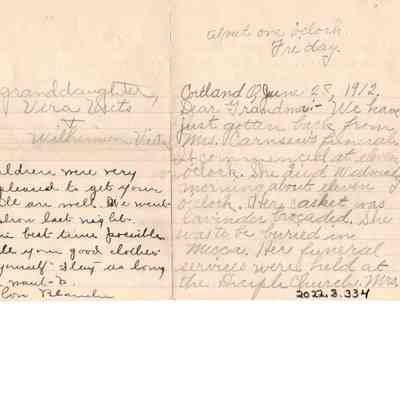 granddaughter,
Vera
+
children were very
pleased to get your
all are well. We went
last night.
best time possible
your good clothes
yourself Stay as long
want to.
Blanche
about one o'clock
Friday.
Cortland O, June 28, 1912.
Dear Grandma:- We have
just gotten back from
Mrs. funeral
It commenced at eleven
o'clock. She died Wednesday
morning about eleven
o'clock. Her casket was
lavinder brocaded. She
was to be buried in
Mecca. Her funeral
services were held at
the Diciple Church. Mrs.
2022.3.334